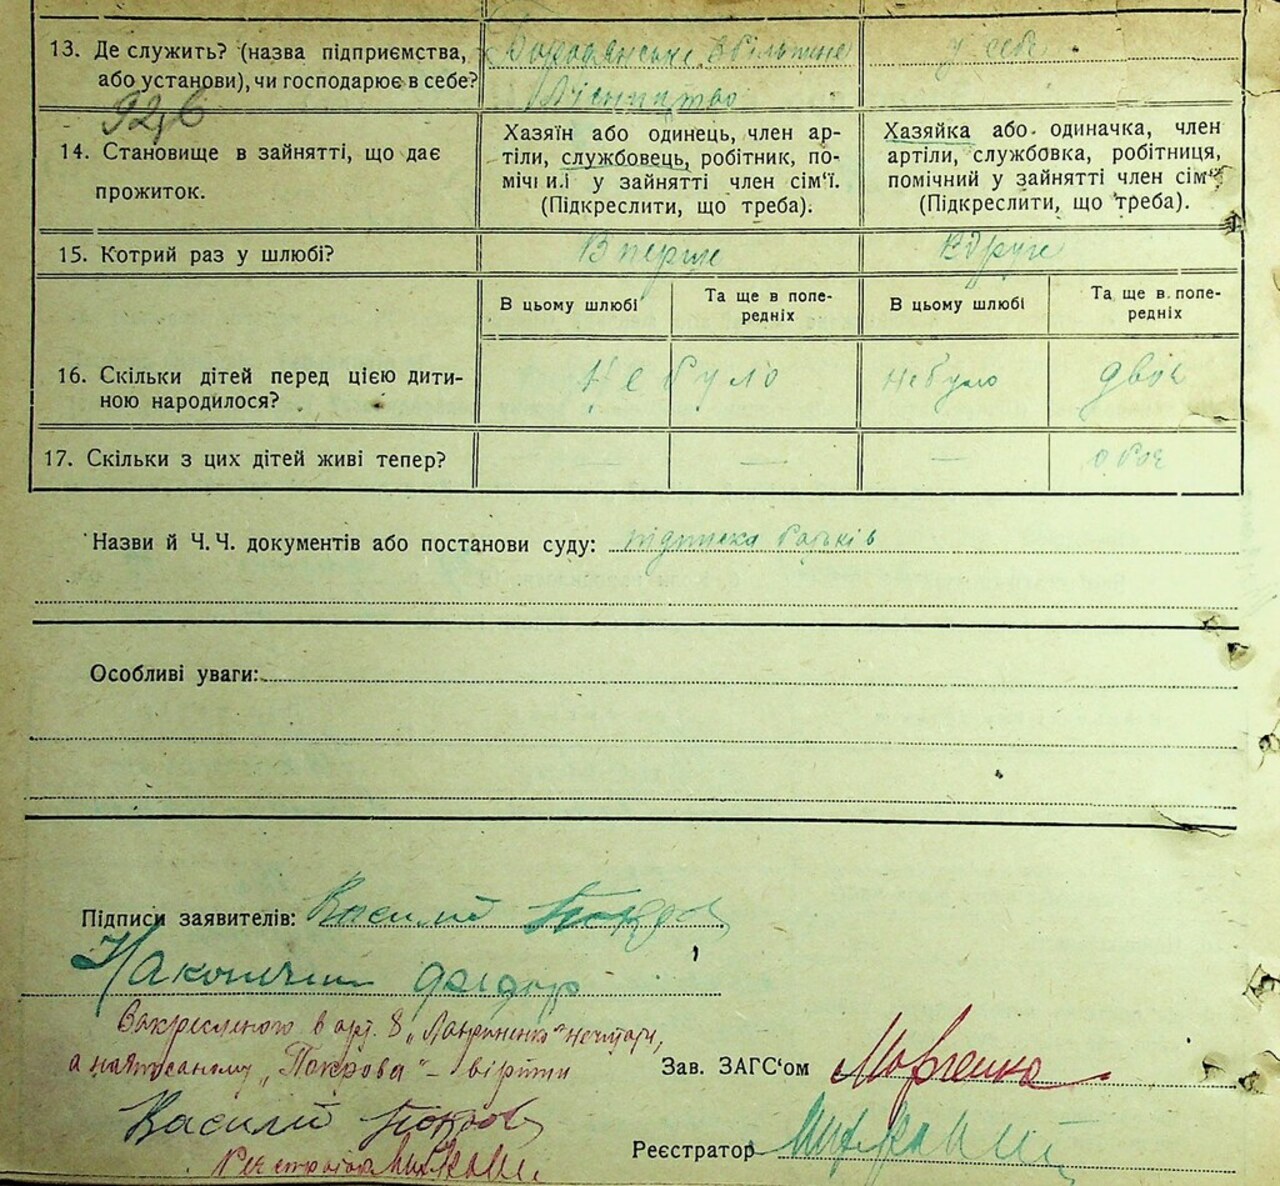 13. Де служить? (назва підприємства, або установи), чи господарює в себе?
Бородянське
Лісництво
у себе
92,6
14. Становище в зайнятті, що дає прожиток.
Хазяїн або одинець, член ар-
тіли, службовець, робітник, по-
мічн и.і у зайнятті член сім'ї.
(Підкреслити, що треба).
Хазяйка або одиначка, член
артіли, службовка, робітниця,
помічний у зайнятті член сім'ї
(Підкреслити, що треба).
15. Котрий раз у шлюбі?
Вперше
Вдруге
В цьому шлюбі
Та ще в попе-
редніх
В цьому шлюбі
Та ще в попе-
редніх
16. Скільки дітей перед цією дити-
ною народилося?
Не було
Не було
двоє
17. Скільки з цих дітей живі тепер?
—
—
—
обоє
Назви й Ч. Ч. документів або постанови суду: підписка батьків
Особливі уваги:
Підписи заявителів: Василий Покров
Федор
Закресленого в арт. 8 „Лавриненко" не читати,
а написаному „Покрова" – вірити
Зав. ЗАГС'ом Марченко
Василий Покров
Реєстратор
Реєстратор